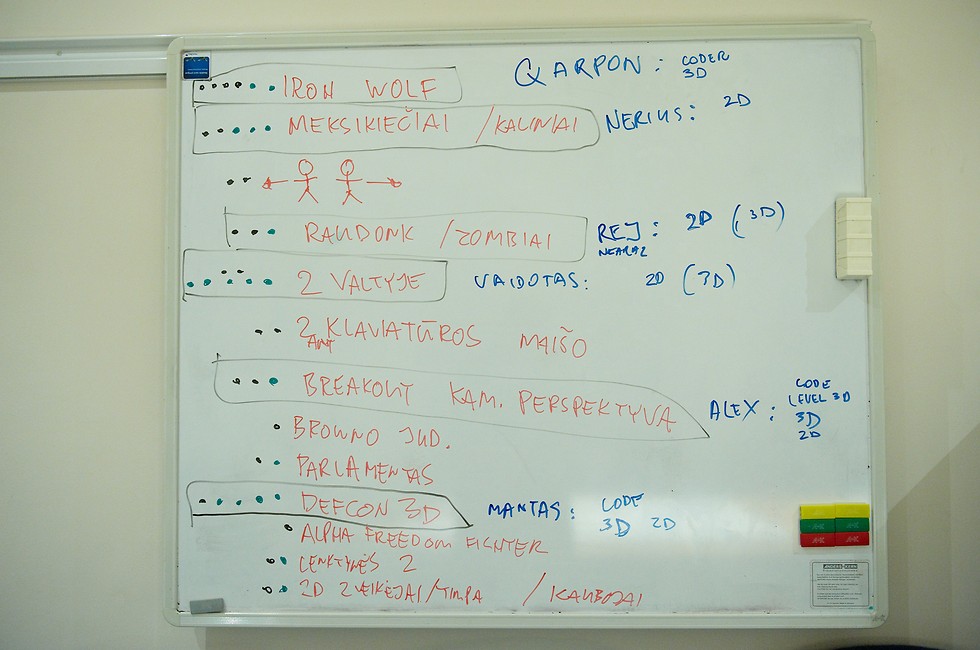 IRON WOLF
QARPON: CODER
3D
MEKSIKIEČIAI / KALINIAI
NERIUS: 2D
RAUDONK / ZOMBIAI
REJ: 2D (3D)
2 VALTYJE
VAIDOTAS: 2D (3D)
2 KLAVIATŪROS MAIŠO
ANT
BREAKOUT KAM. PERSPEKTYVA
ALEX: CODE
LEVEL 3D
3D
2D
BROWNO JUD.
PARLAMENTAS
DEFCON 3D
MANTAS: CODE
3D 2D
ALPHA FREEDOM FIGHTER
LENKTYNĖS 2
2D VEIKĖJAI/TIMPA / KAUBOJAI